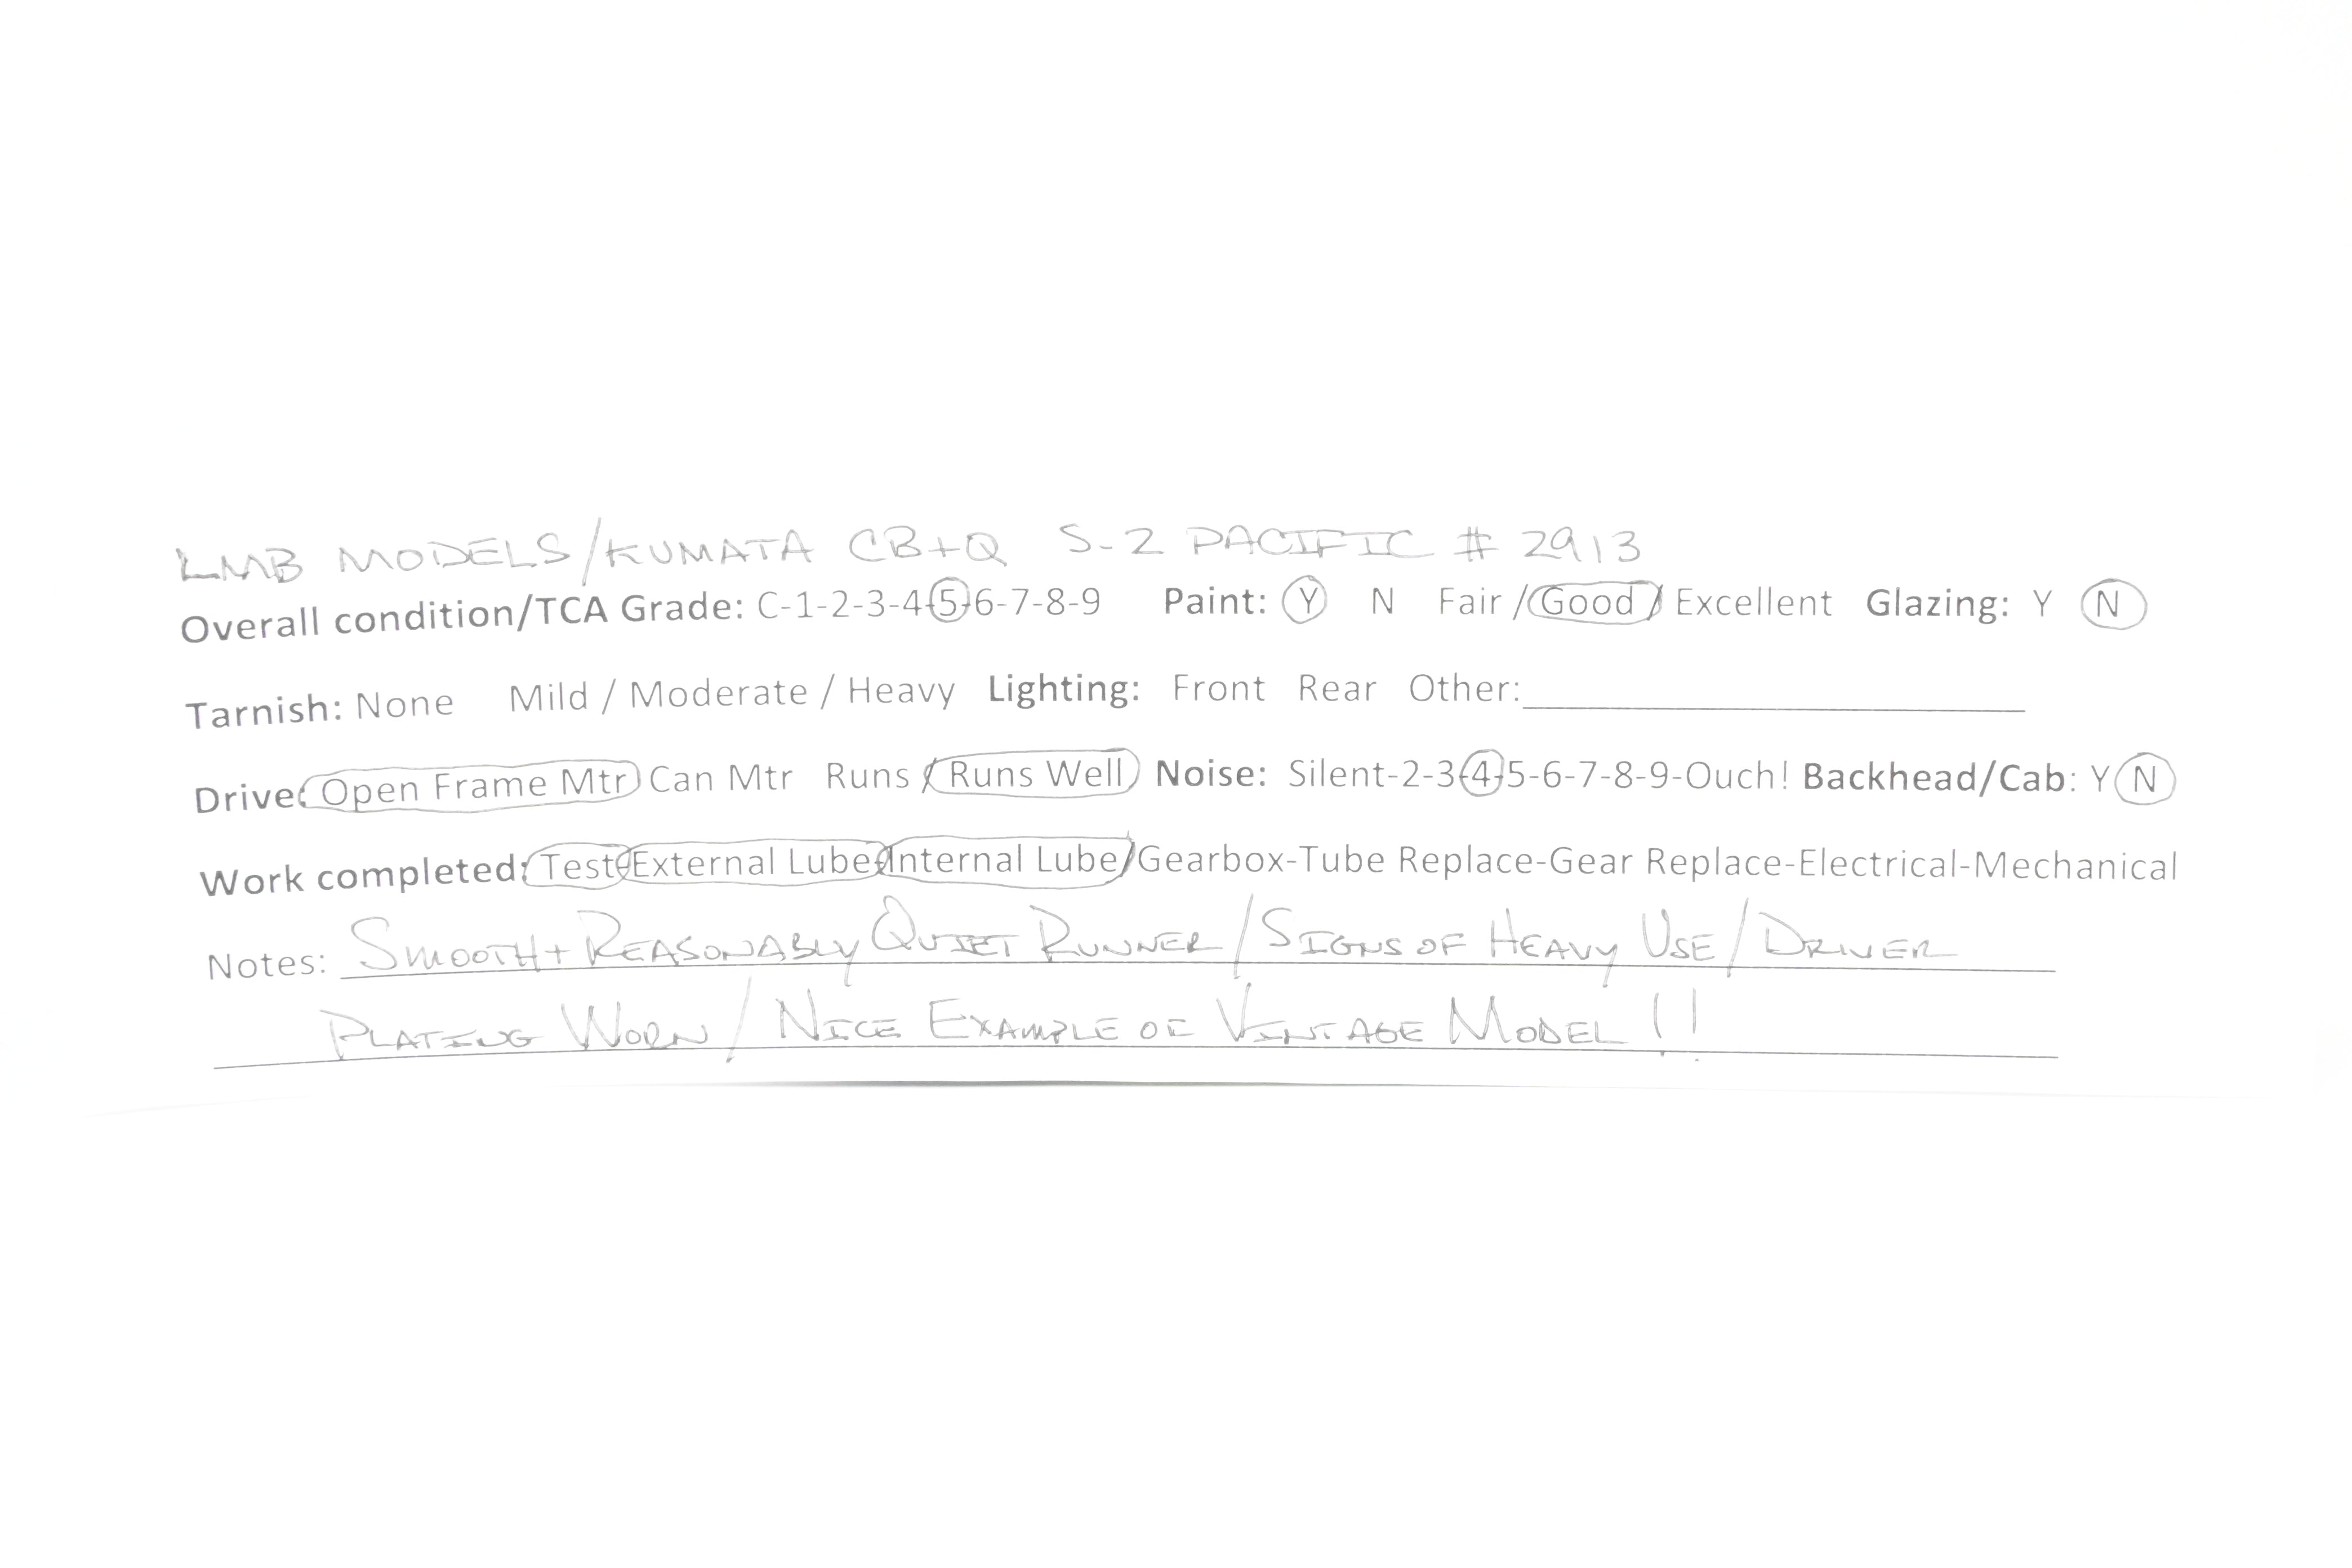 LMB MODELS/KUMATA CB+Q S-2 PACIFIC # 2913
Overall condition/TCA Grade: C-1-2-3-4-5-6-7-8-9 Paint: Y N Fair / Good / Excellent Glazing: Y N
Tarnish: None Mild / Moderate / Heavy Lighting: Front Rear Other:
Drive: Open Frame Mtr Can Mtr Runs / Runs Well Noise: Silent-2-3-4-5-6-7-8-9-Ouch! Backhead/Cab: Y N
Work completed: Test-External Lube-Internal Lube/Gearbox-Tube Replace-Gear Replace-Electrical-Mechanical
Notes: SMOOTH + REASONABLY QUIET RUNNER/SIGNS OF HEAVY USE/DRIVER
PLATING WORN/NICE EXAMPLE OF VINTAGE MODEL !!